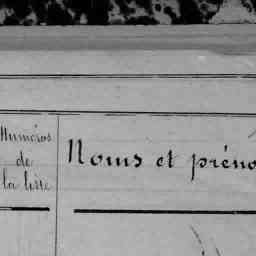 Numéros
de
la liste
Noms et préno